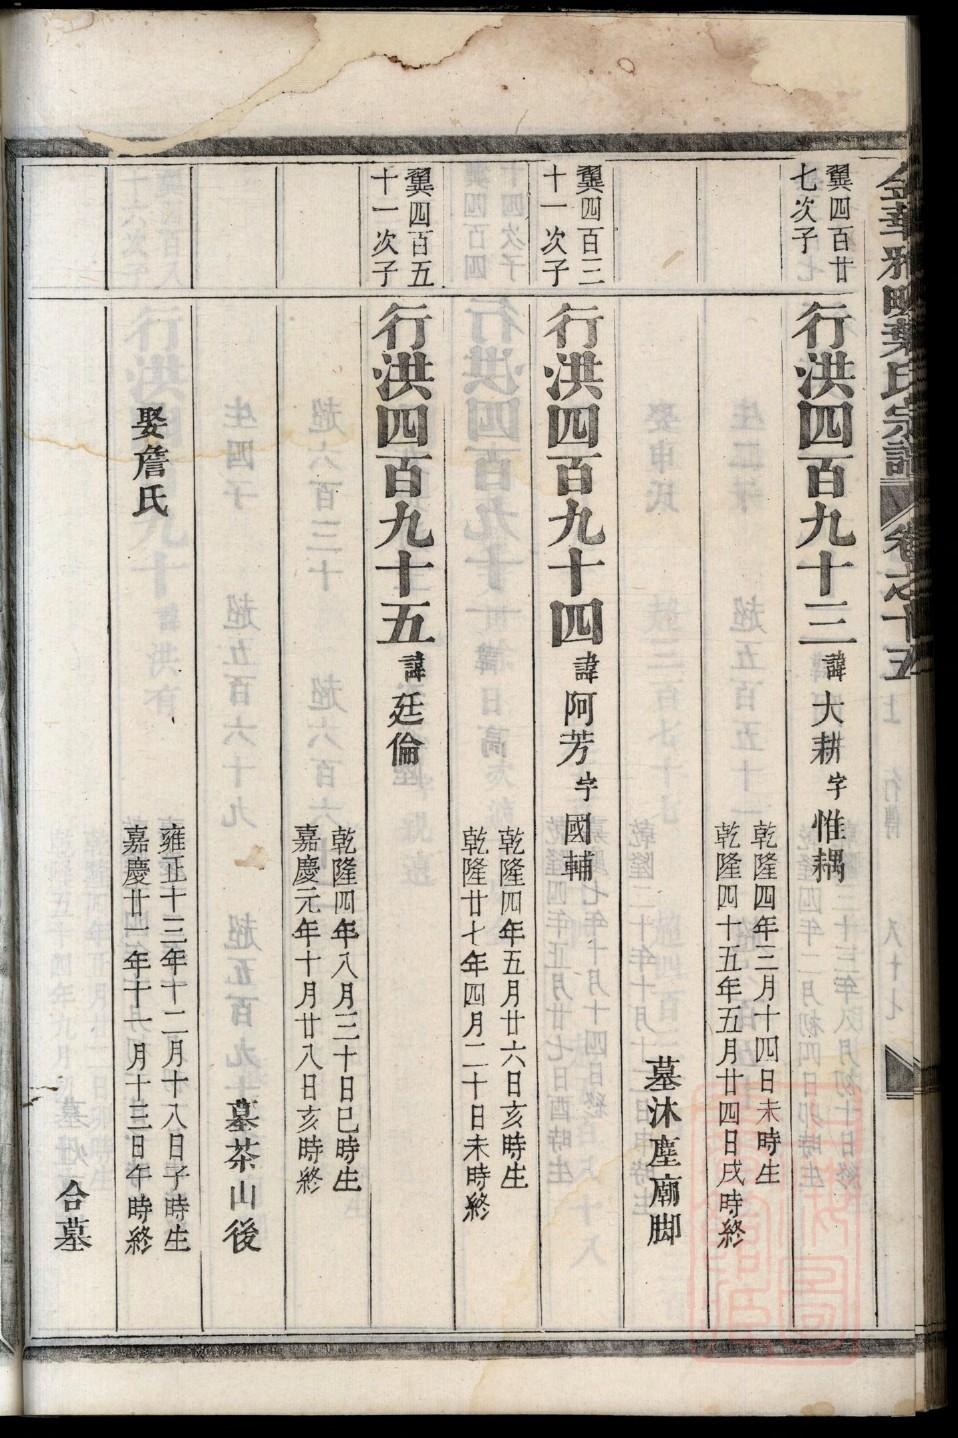 金華雅畈葉氏宗譜 卷之十五
翼四百廿
七次子
行洪四百九十三 諱大耕 字惟耦
乾隆四年三月十四日未時生
乾隆四十五年五月廿四日戌時終
墓沐塵廟脚
翼四百三
十一次子
行洪四百九十四 諱阿芳 字國輔
乾隆四年五月廿六日亥時生
乾隆廿七年四月二十日未時終
翼四百五
十一次子
行洪四百九十五 諱廷倫
乾隆四年八月三十日巳時生
嘉慶元年十月廿八日亥時終
墓茶山後
娶詹氏
雍正十三年十二月十八日子時生
嘉慶廿一年十一月十三日午時終
合墓